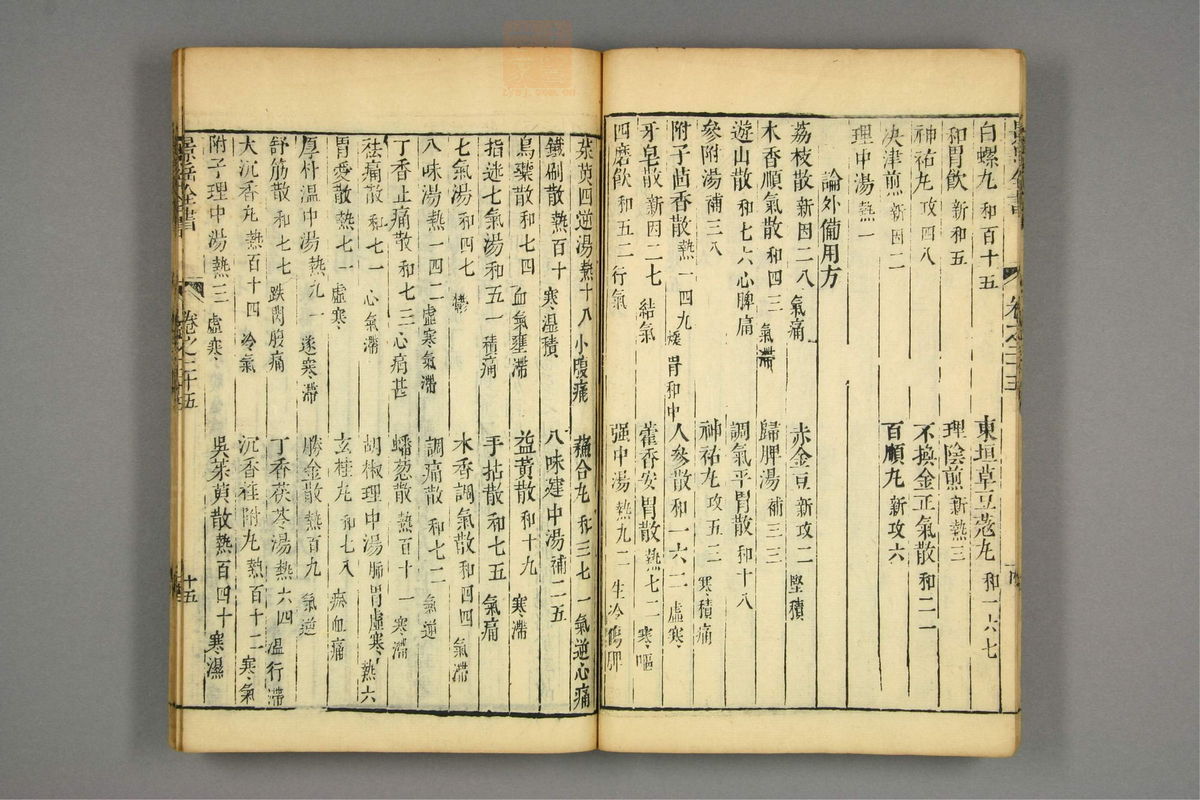 白螺丸 和百十五 東垣草豆蔻丸 和一六七
和胃飲 新和五 理陰煎 新熱三
神祐丸 攻四八 不換金正氣散 和二一
决津煎 新因二 百順丸 新攻六
理中湯 熱一
論外備用方
荔枝散 新因二八 氣痛 赤金豆 新攻二 堅積
木香順氣散 和四三 氣滯 歸脾湯 補三三
遊山散 和七六 心脾痛 調氣平胃散 和十八
參附湯 補三八 神祐丸 攻五二 寒積痛
附子茴香散 熱一四九 煖胃和中 人參散 和一六二 虛寒
牙皂散 新因二七 結氣 藿香安胃散 熱七二 寒嘔
四磨飲 和五二 行氣 强中湯 熱九二 生冷傷脾
景岳全書 卷之二十五
茱萸四逆湯 熱十八 小腹痛 蘇合丸 和三七一 氣逆心痛
鐵刷散 熱百十 寒温積 八味建中湯 補二五
烏藥散 和七四 血氣壅滯 益黃散 和十九 寒滯
指迷七氣湯 和五一 積痛 手拈散 和七五 氣痛
七氣湯 和四七 鬱 木香調氣散 和四四 氣滯
八味湯 熱一四二 虛寒氣滯 調痛散 和七二 氣逆
丁香止痛散 和七三 心痛甚 蟠葱散 熱百十一 寒滯
祛痛散 和七一 心氣滯 胡椒理中湯 肺胃虛寒 熱六
胃愛散 熱七一 虛寒 玄桂丸 和七八 瘀血痛
厚朴温中湯 熱九一 逐寒滯 勝金散 熱百九 氣逆
舒筋散 和七七 跌閃腹痛 丁香茯苓湯 熱六四 温行滯
大沉香丸 熱百十四 冷氣 沉香桂附丸 熱百十二 寒氣
附子理中湯 熱二 虛寒 吳茱萸散 熱百四十 寒濕
景岳全書 卷之二十五 十五